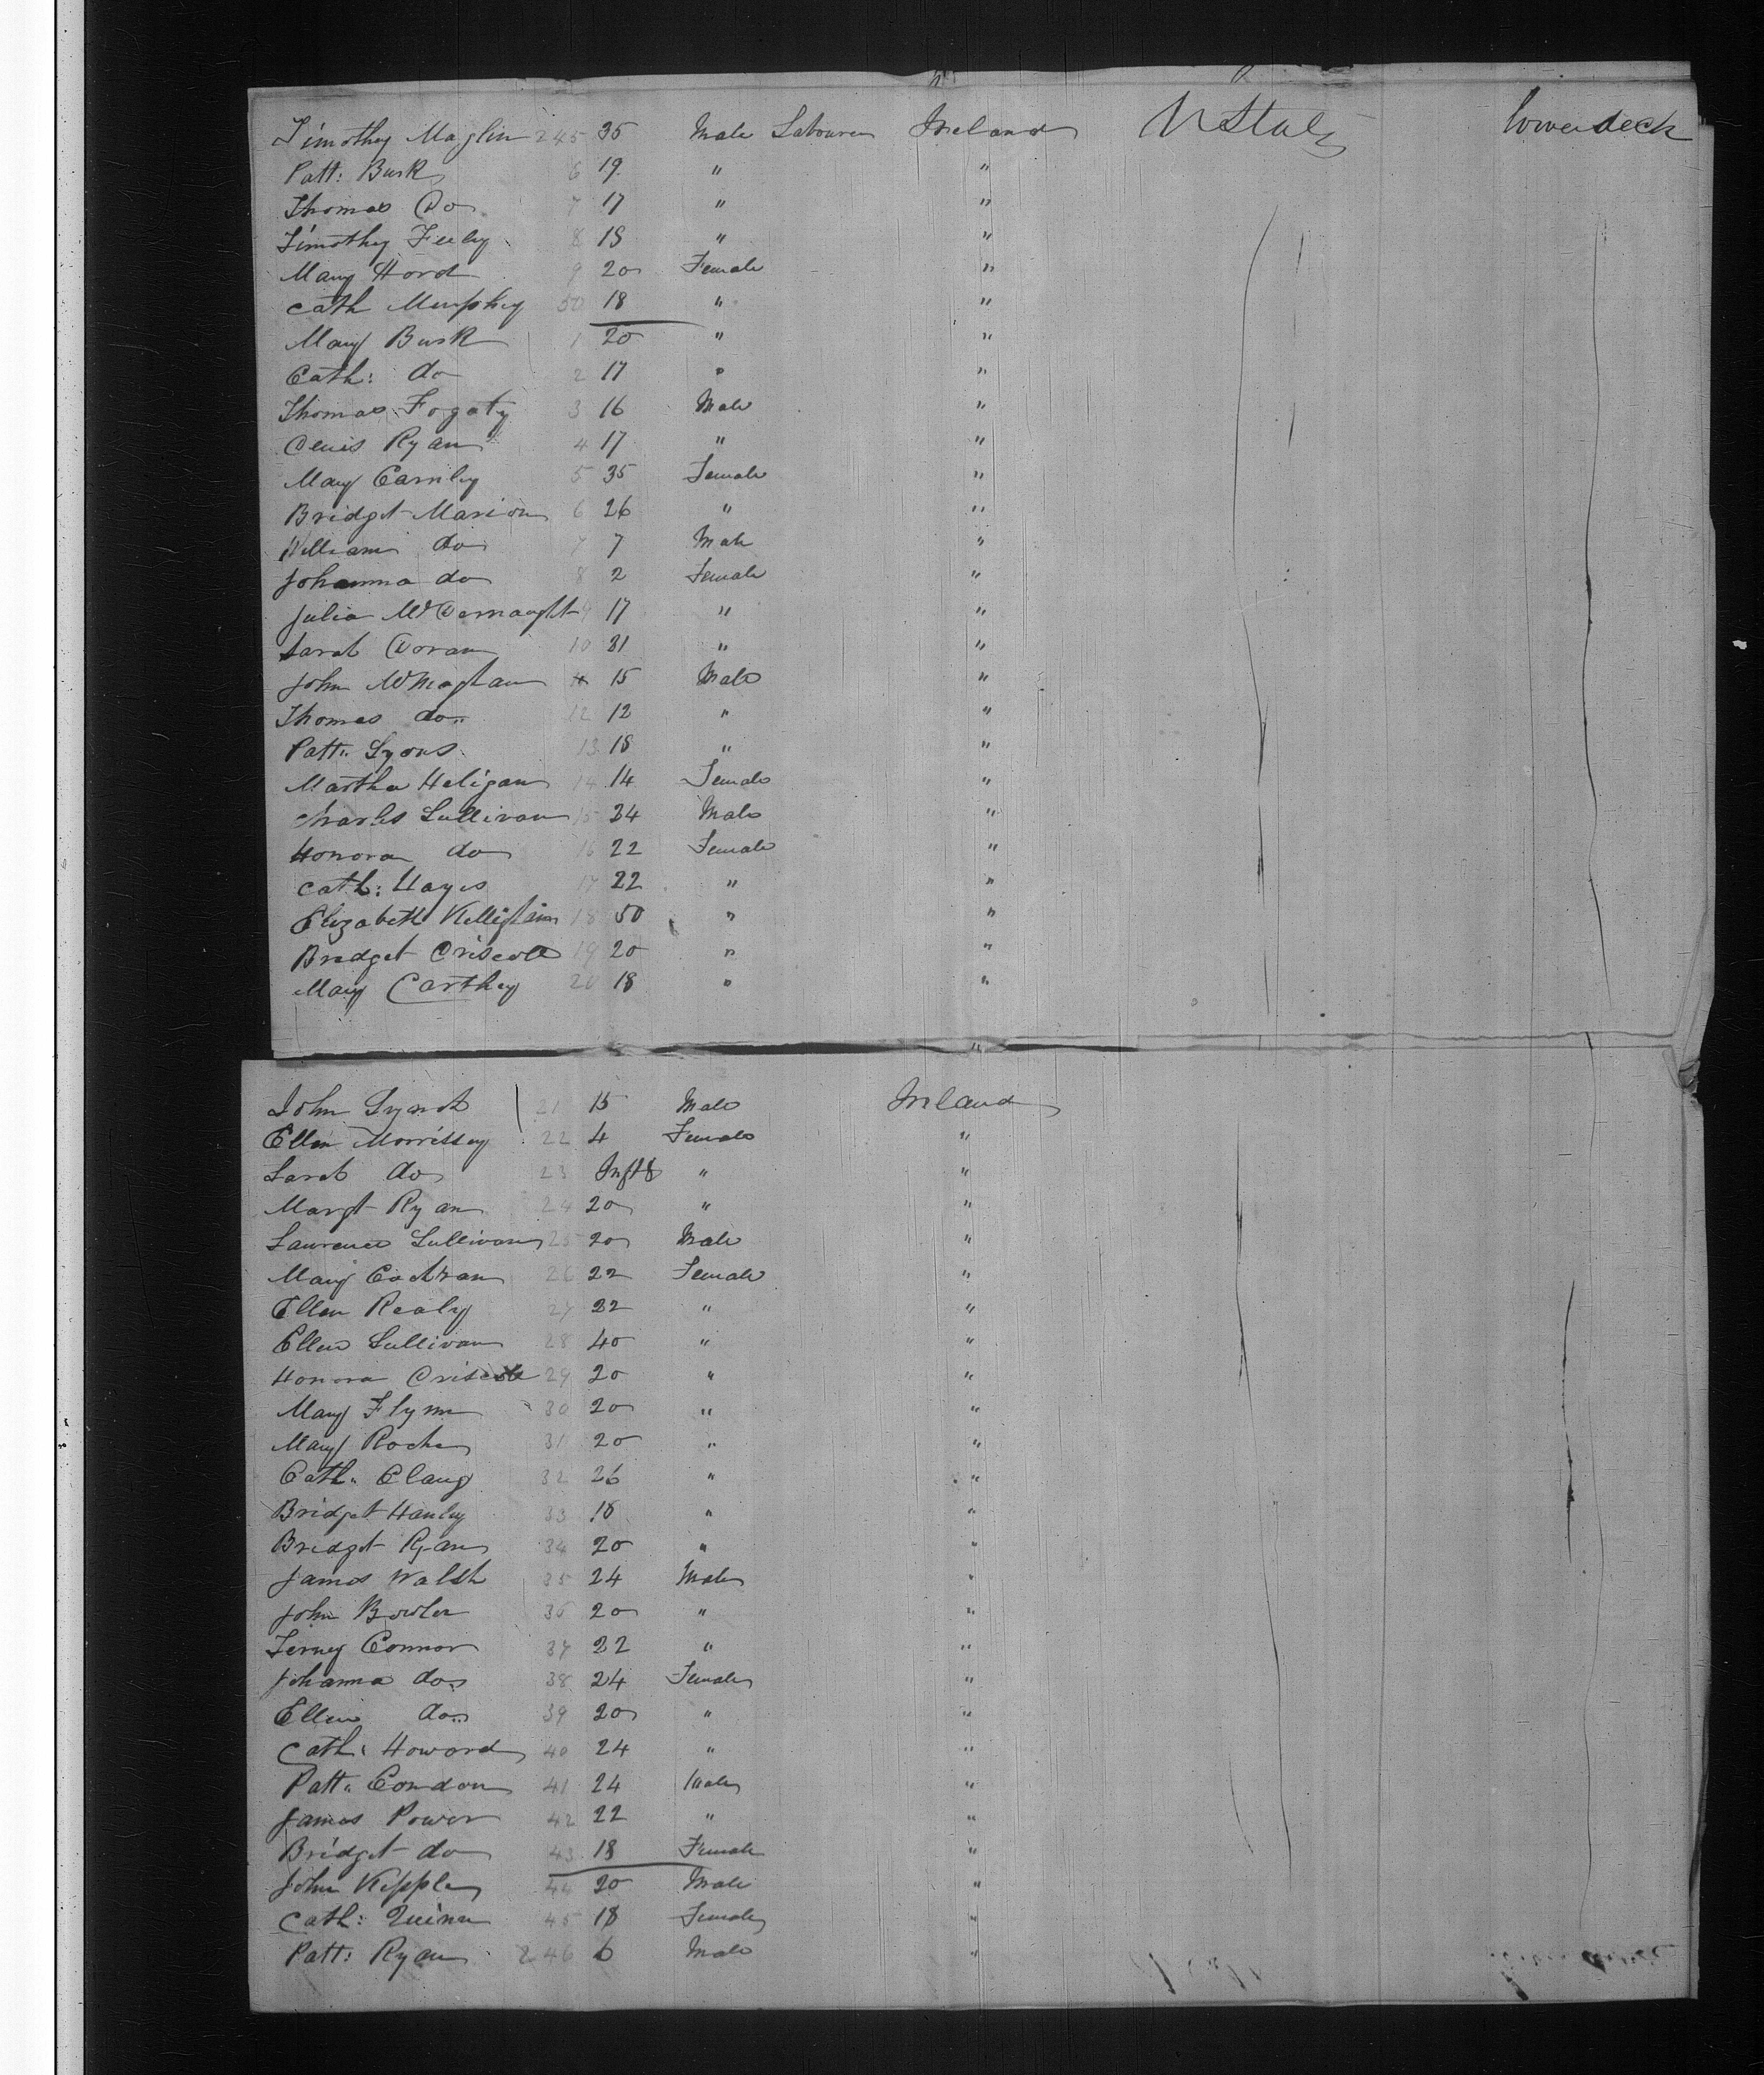 Timothy Maglin 245 35 Male Labourer Ireland U States lower deck
Patt: Burk 6 19 " "
Thomas Do 7 17 " "
Timothy Feeley 8 18 " "
Mary Hord 9 20 Female "
Cath Murphey 50 18 " "
Mary Burk 1 20 " "
Cath: do 2 17 " "
Thomas Fogaty 3 16 Male "
Denis Ryan 4 17 " "
Mary Carnley 5 35 Female "
Bridget Marion 6 26 " "
William do 7 7 Male "
Johanna do 8 2 Female "
Julia 9 17 " "
Sarah Doran 10 21 " "
John 15 Male "
Thomas do 12 12 " "
Patt: Lyons 13 18 " "
Martha Heligan 14 14 Female "
Charles Sullivan 15 24 Male "
Honora do 16 22 Female "
Cath: Hayes 17 22 " "
Elizabeth 18 50 " "
Bridget Driscoll 19 20 " "
Mary Carthey 20 18 " "
"
John Lynch 21 15 Male Ireland
Ellen Morrissey 22 4 Female "
Sarah do 23 Inft " "
Margt Ryan 24 20 " "
Laurence Sullivan 25 20 Male "
Mary Cochran 26 22 Female "
Ellen Realy 27 22 " "
Ellen Sullivan 28 40 " "
Honora Driscoll 29 20 " "
Mary Flynn 30 20 " "
Mary Roche 31 20 " "
Cath: Clany 32 26 " "
Bridget Hanley 33 18 " "
Bridget Ryan 34 20 " "
James Walsh 35 24 Male "
John Bowler 36 20 " "
Connor 37 22 " "
Johanna do 38 24 Female "
Ellen do 39 20 " "
Cath: Howard 40 24 " "
Patt: Condon 41 24 Male "
James Power 42 22 " "
Bridget do 43 18 Female "
John Kepple 44 20 Male "
Cath: Quinn 45 18 Female "
Patt: Ryan 246 6 Male "